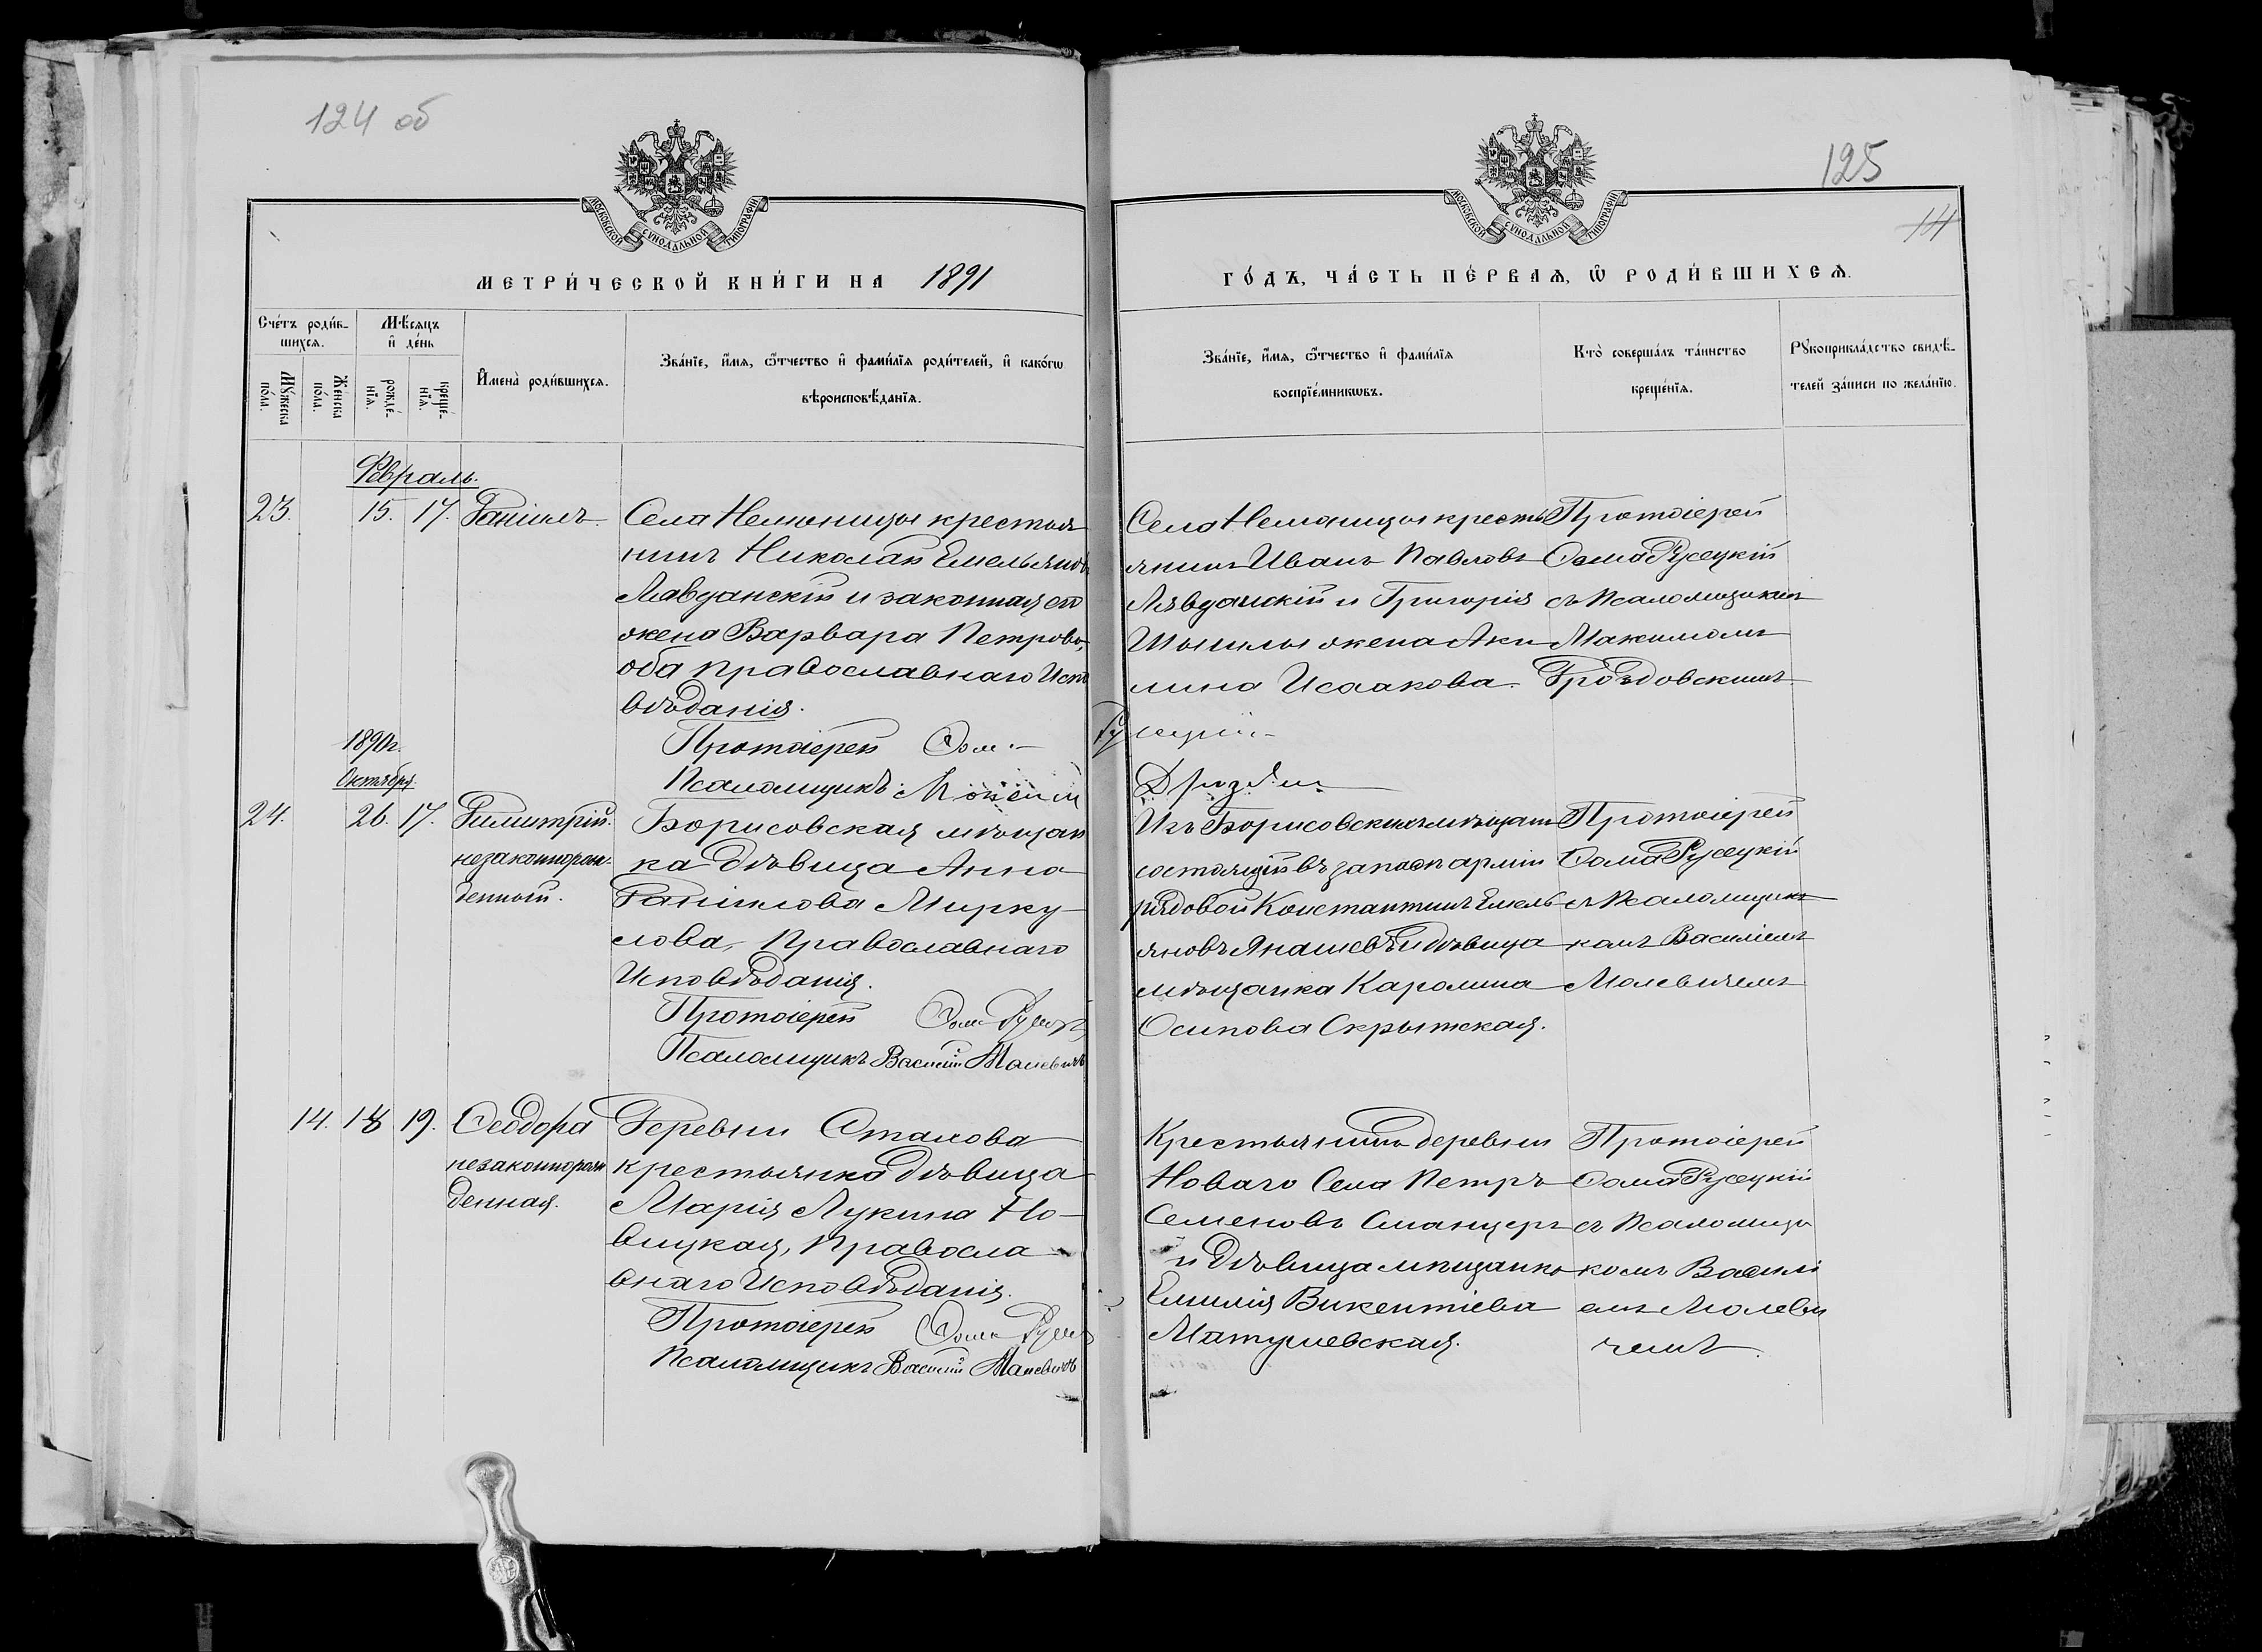 124 об
125
14
МОСКОВСКОЙ СѴНОДАЛЬНОЙ ТИПОГРАФІИ
МОСКОВСКОЙ СѴНОДАЛЬНОЙ ТИПОГРАФІИ
МЕТРИ́ЧЕСКОЙ КНИ́ГИ НА 1891
Сче́тъ роди́в-
шихсѧ.
Мѣ́сѧцъ
и҆ де́нь
Мꙋ́жеска
по́ла.
Же́нска
по́ла.
рожде́-
нїѧ.
креще́-
нїѧ.
И҆мена̀ роди́вшихсѧ.
Зва́нїе, и҆́мѧ, ѻ҆́тчество и҆ фами́лїѧ роди́телей, и҆ како́гѡ
вѣроисповѣ́данїѧ.
Февраль.
23. 15. 17. Даніилъ.
Села Неманицы крестья
нинъ Николай Емельяновъ
Лавданскій и законная его
жена Варвара Петрова,
оба православнаго Испо
вѣданія.
Протоіерей Ѳома
Псаломщикъ Максим
1890г.
Октября.
24. 26. 17. Димитрій.
незаконнорож-
денный.
Борисовская мѣщан
ка дѣвица Анна
Даніилова Мирку-
лова, Православнаго
Исповѣданія.
Протоіерей Ѳома Русецк
Псаломщикъ Василій Малевичъ
14. 18 19. Ѳеодора
незаконнорож
денная.
Деревни Стахова
крестьянка дѣвица
Марія Лукина Но-
вицкая, Правосла
внаго Исповѣданія.
Протоіерей Ѳома Русец
Псаломщикъ Василій Малевичъ
ГО́ДЪ, ЧА́СТЬ ПЕ́РВАѦ, Ѡ҆ РОДИ́ВШИХСѦ.
Зва́нїе, и҆́мѧ, ѻ҆́тчество и҆ фами́лїѧ
воспрїе́мникѡвъ.
Кто̀ соверша́лъ та́инство
креще́нїѧ.
Рꙋкоприкла́дство свидѣ́-
телей за́писи по жела́нїю.
Села Неманицы кресть
янинъ Иванъ Павловъ
Лавданскій и Григорія
жена Аки
лина Исаакова.
Протоіерей
Ѳома Русецкій
съ Псаломщикомъ
Максимомъ
Дроздовскимъ
Русецкій
Дроздов
Изъ Борисовскихъ мѣщанъ
состоящій въ запасѣ арміи
рядовой Константинъ Емель
яновъ и дѣвица
мѣщанка Каролина
Осипова Скрытская.
Протоіерей
Ѳома Русецкій
съ Псаломщи
комъ Василіемъ
Малевичемъ
Крестьянинъ деревни
Новаго Села Петръ
Семеновъ
и дѣвица мѣщанка
Емилія Викентіева
Матушевская.
Протоіерей
Ѳома Русецкій
съ Псаломщи
комъ Василі
емъ Малеви
чемъ.